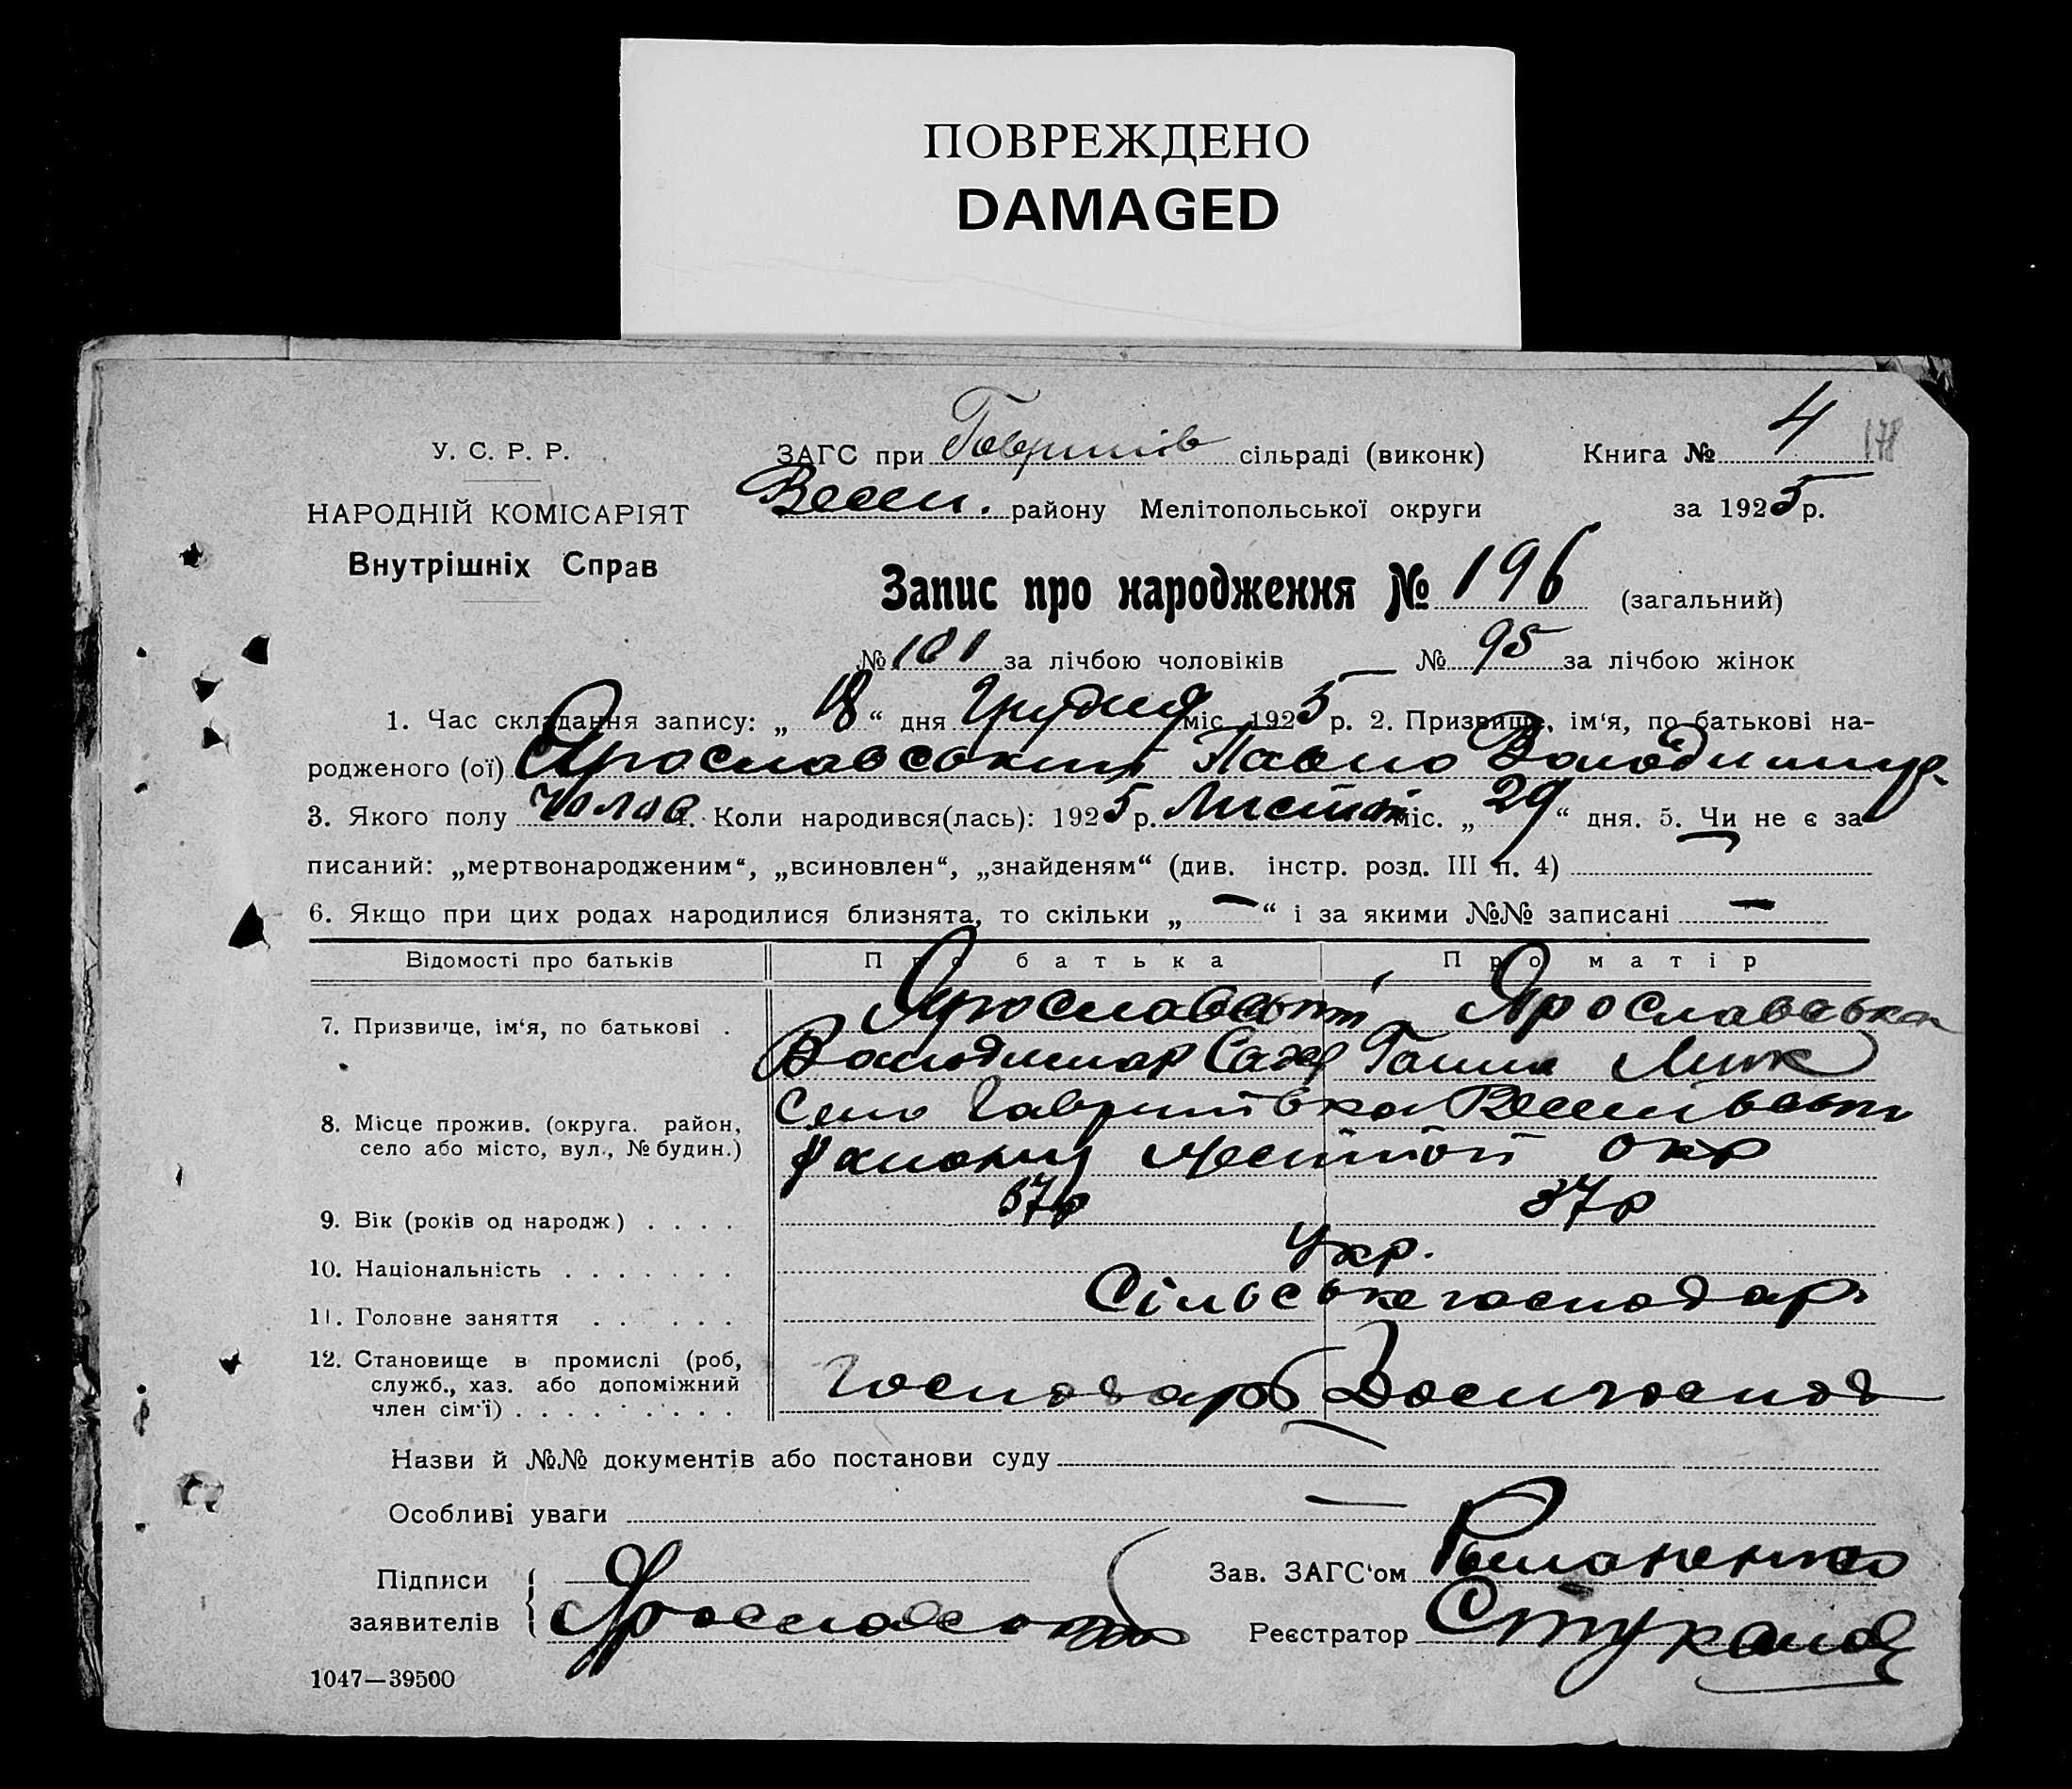 ПОВРЕЖДЕНО
DAMAGED
У. С. Р. Р.
НАРОДНІЙ КОМІСАРІЯТ
Внутрішніх Справ
ЗАГС при Гаврилів сільраді (виконк)
Весел. району Мелітопольської округи
Книга № 4
178
за 1925 р.
Запис про народження № 196 (загальний)
№ 101 за лічбою чоловіків № 95 за лічбою жінок
1. Час складання запису: „ 18 “ дня Грудня міс. 1925 р. 2. Призвище, ім‘я, по батькові на-
родженого (ої) Ярославський Павло Володимир
3. Якого полу чолов 4. Коли народився(лась): 1925 р. Листоп міс. „ 29 “ дня. 5. Чи не є за
писаний: „мертвонародженим“, „всиновлен“, „знайденям“ (див. інстр. розд. III п. 4)
6. Якщо при цих родах народилися близнята, то скільки „ — “ і за якими №№ записані —
Відомості про батьків Про батька Про матір
7. Призвище, ім‘я, по батькові . Ярославський Ярославська
Володимир Ганна
8. Місце прожив. (округа. район, село або місто, вул., № будин.) Село Гаврилівка Веселівськ
району Меліпол окр
9. Вік (років од народж) . . . . 37р 37р
10. Національність . . . . . . . Укр.
11. Головне заняття . . . . . . Сільське господар
12. Становище в промислі (роб,
служб., хаз. або допоміжний
член сім‘ї) . . . . . . . . . Господарь Досігоспод
Назви й №№ документів або постанови суду
Особливі уваги —
Підписи
заявителів Ярославський
Зав. ЗАГС‘ом Романенко
Реєстратор
1047—39500